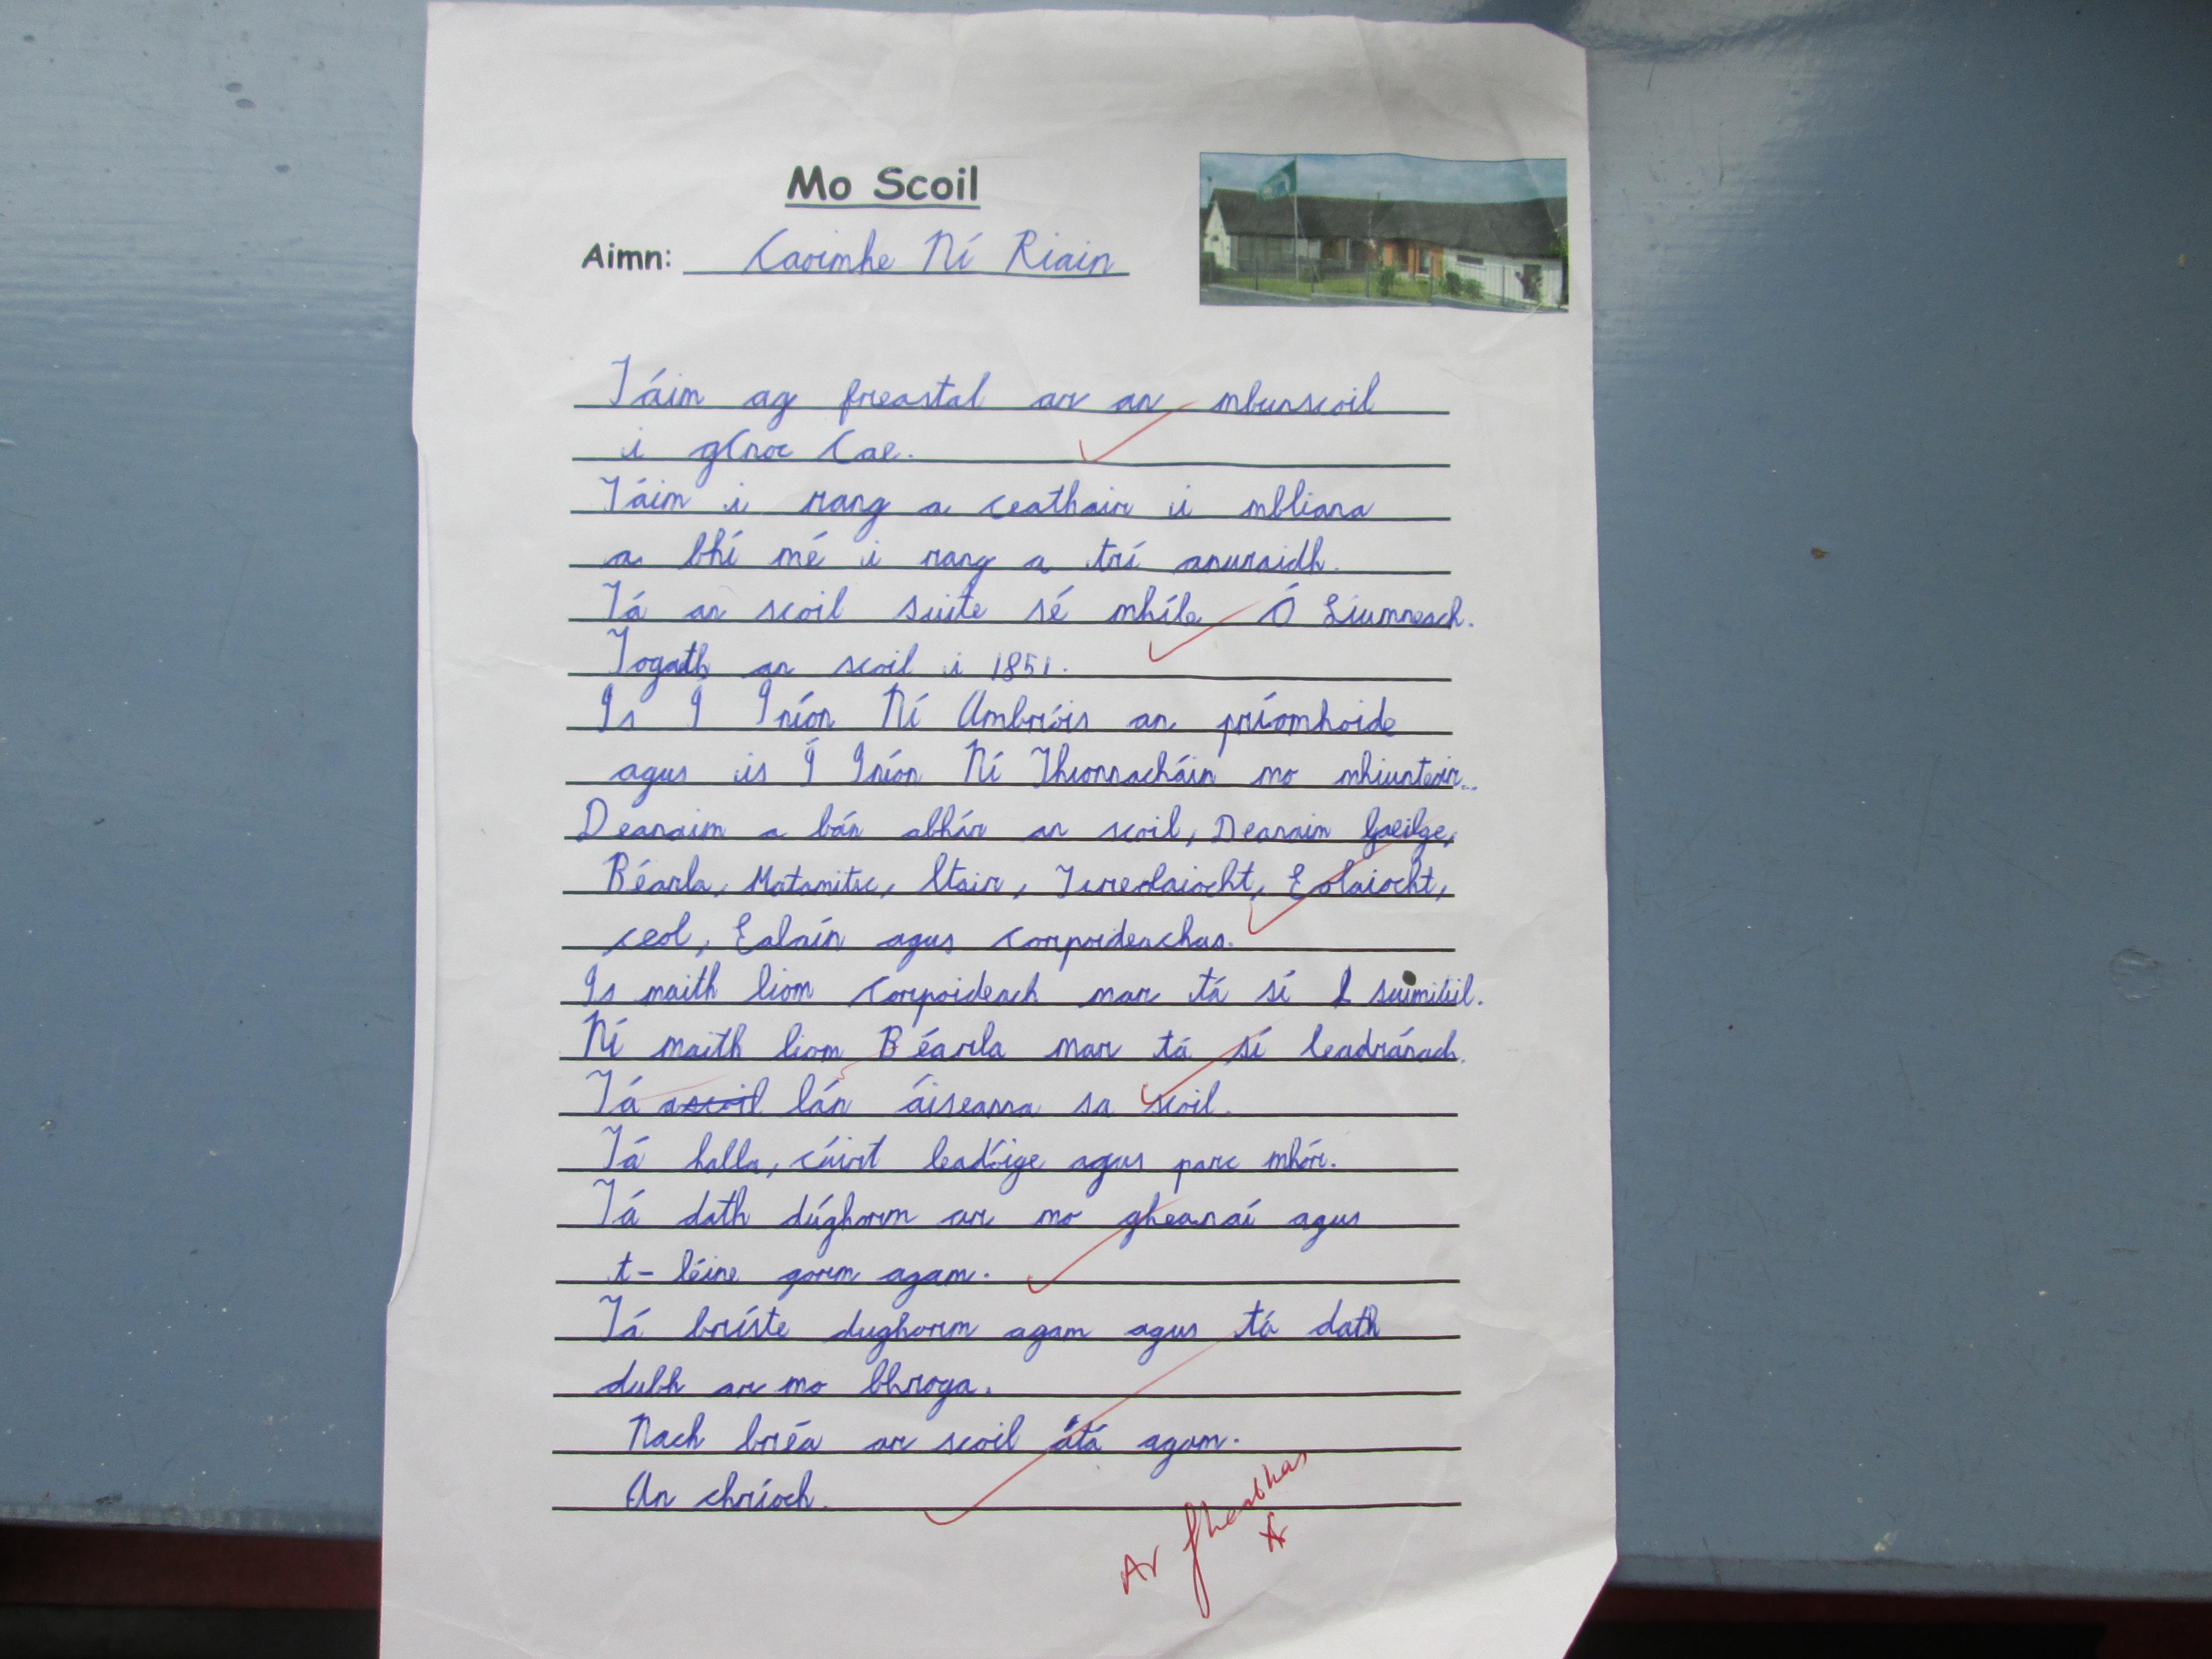 Mo Scoil
Aimn: Caoimhe Ní Riain
Táim ag freastal ar an mbunscoil
i gCnoc Cae.
Táim i rang a ceathair i mbliana
a bhí mé i rang a trí anuraidh.
Tá an scoil suite sé mhíle Ó Liumneach.
Togath an scoil i 1851.
Is Í Iníon Ní Ambróis an príomhoide
agus is Í Iníon Ní Thionnacháin mo mhiunteoir..
Deanaim a bán abhár an scoil, Deanaim Gaeilge,
Béarla, Matamitic, Stair, Tireolaiocht, Eolaiocht,
ceol, Ealaín agus corpoideachas.
Is maith liom corpoideach mar tá sí suimiúil.
Ní maith liom Béarla mar tá sí leadránach.
Tá ascoil lán áiseanna sa scoil.
Tá halla, cúirt leadóige agus parc mhór.
Tá dath dúghorm ar mo gheanaí agus
t-léine gorm agam.
Tá bríste dughorm agam agus tá dath
dubh ar mo bhroga.
Nach bréa an scoil átá agam.
An chríoch.
Ar fheabhas